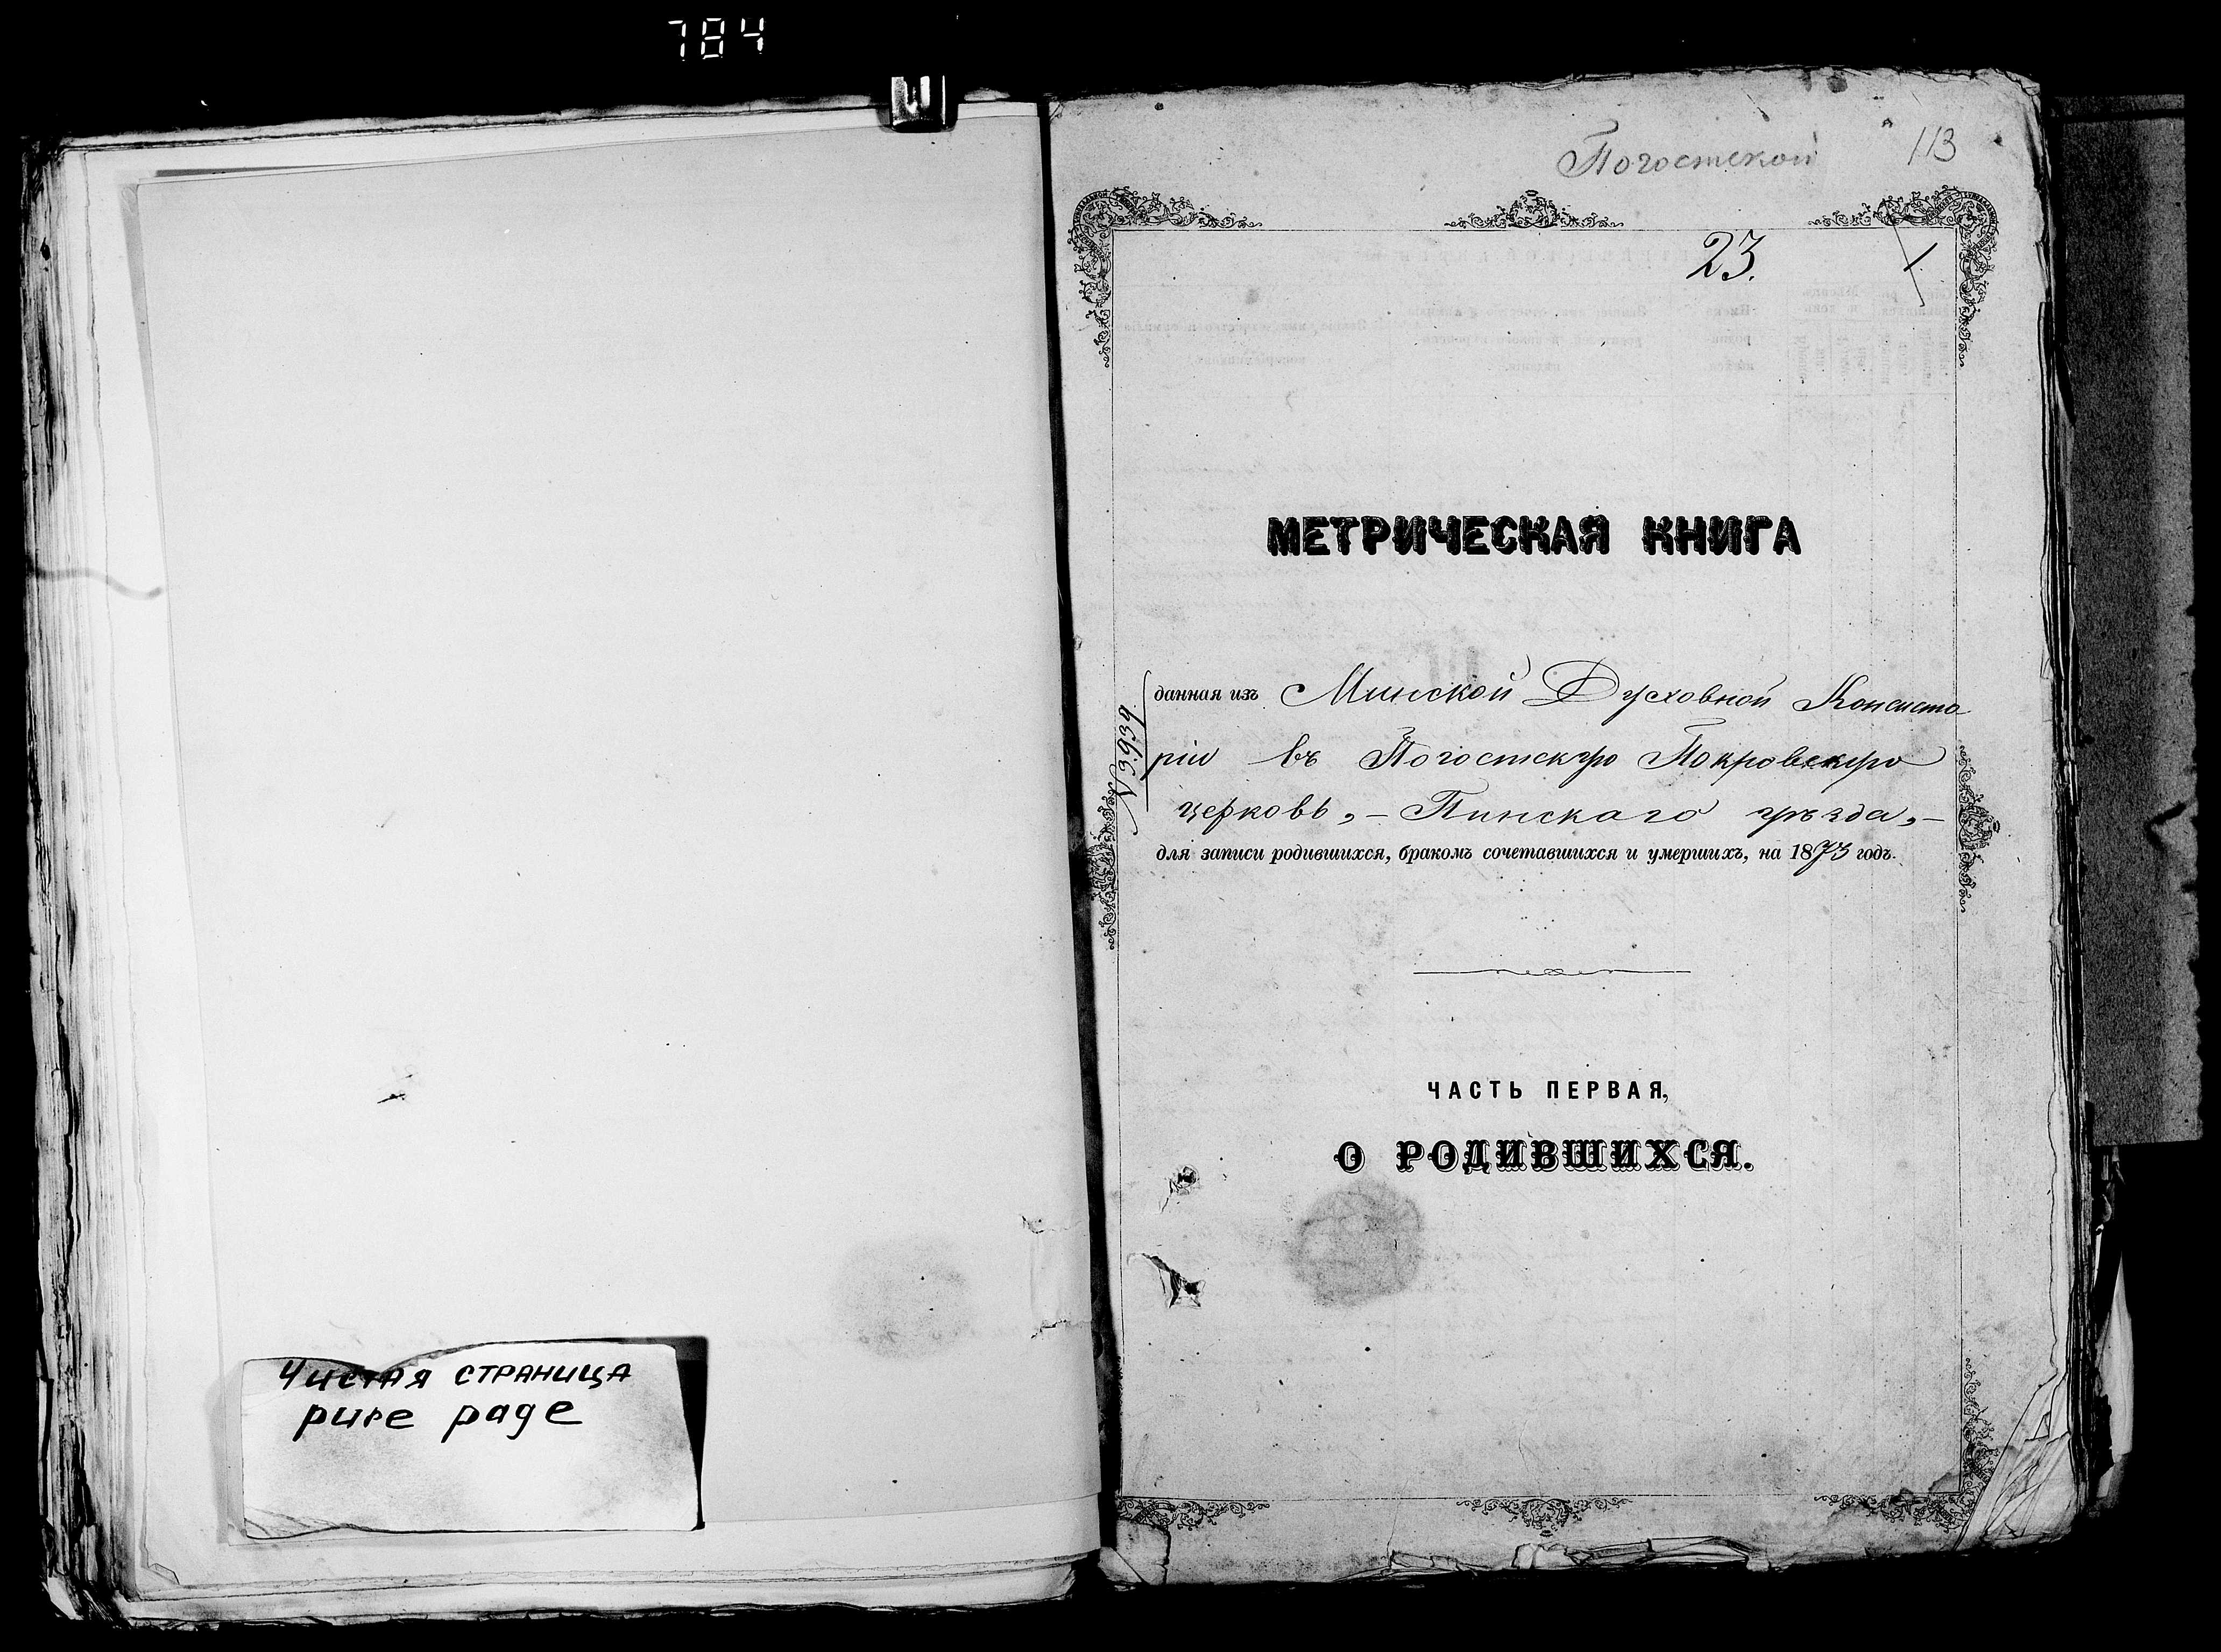 784
Погостской 113
23.
МЕТРИЧЕСКАЯ КНИГА
N 3939
данная изъ Минской Духовной Консисто
ріи въ Погостскую Покровскую
церковь, – Пинскаго уѣзда, –
для записи родившихся, бракомъ сочетавшихся и умершихъ, на 1873 годъ.
ЧАСТЬ ПЕРВАЯ,
О РОДИВШИХСЯ.
Чистая СТРАНИЦА
pure page